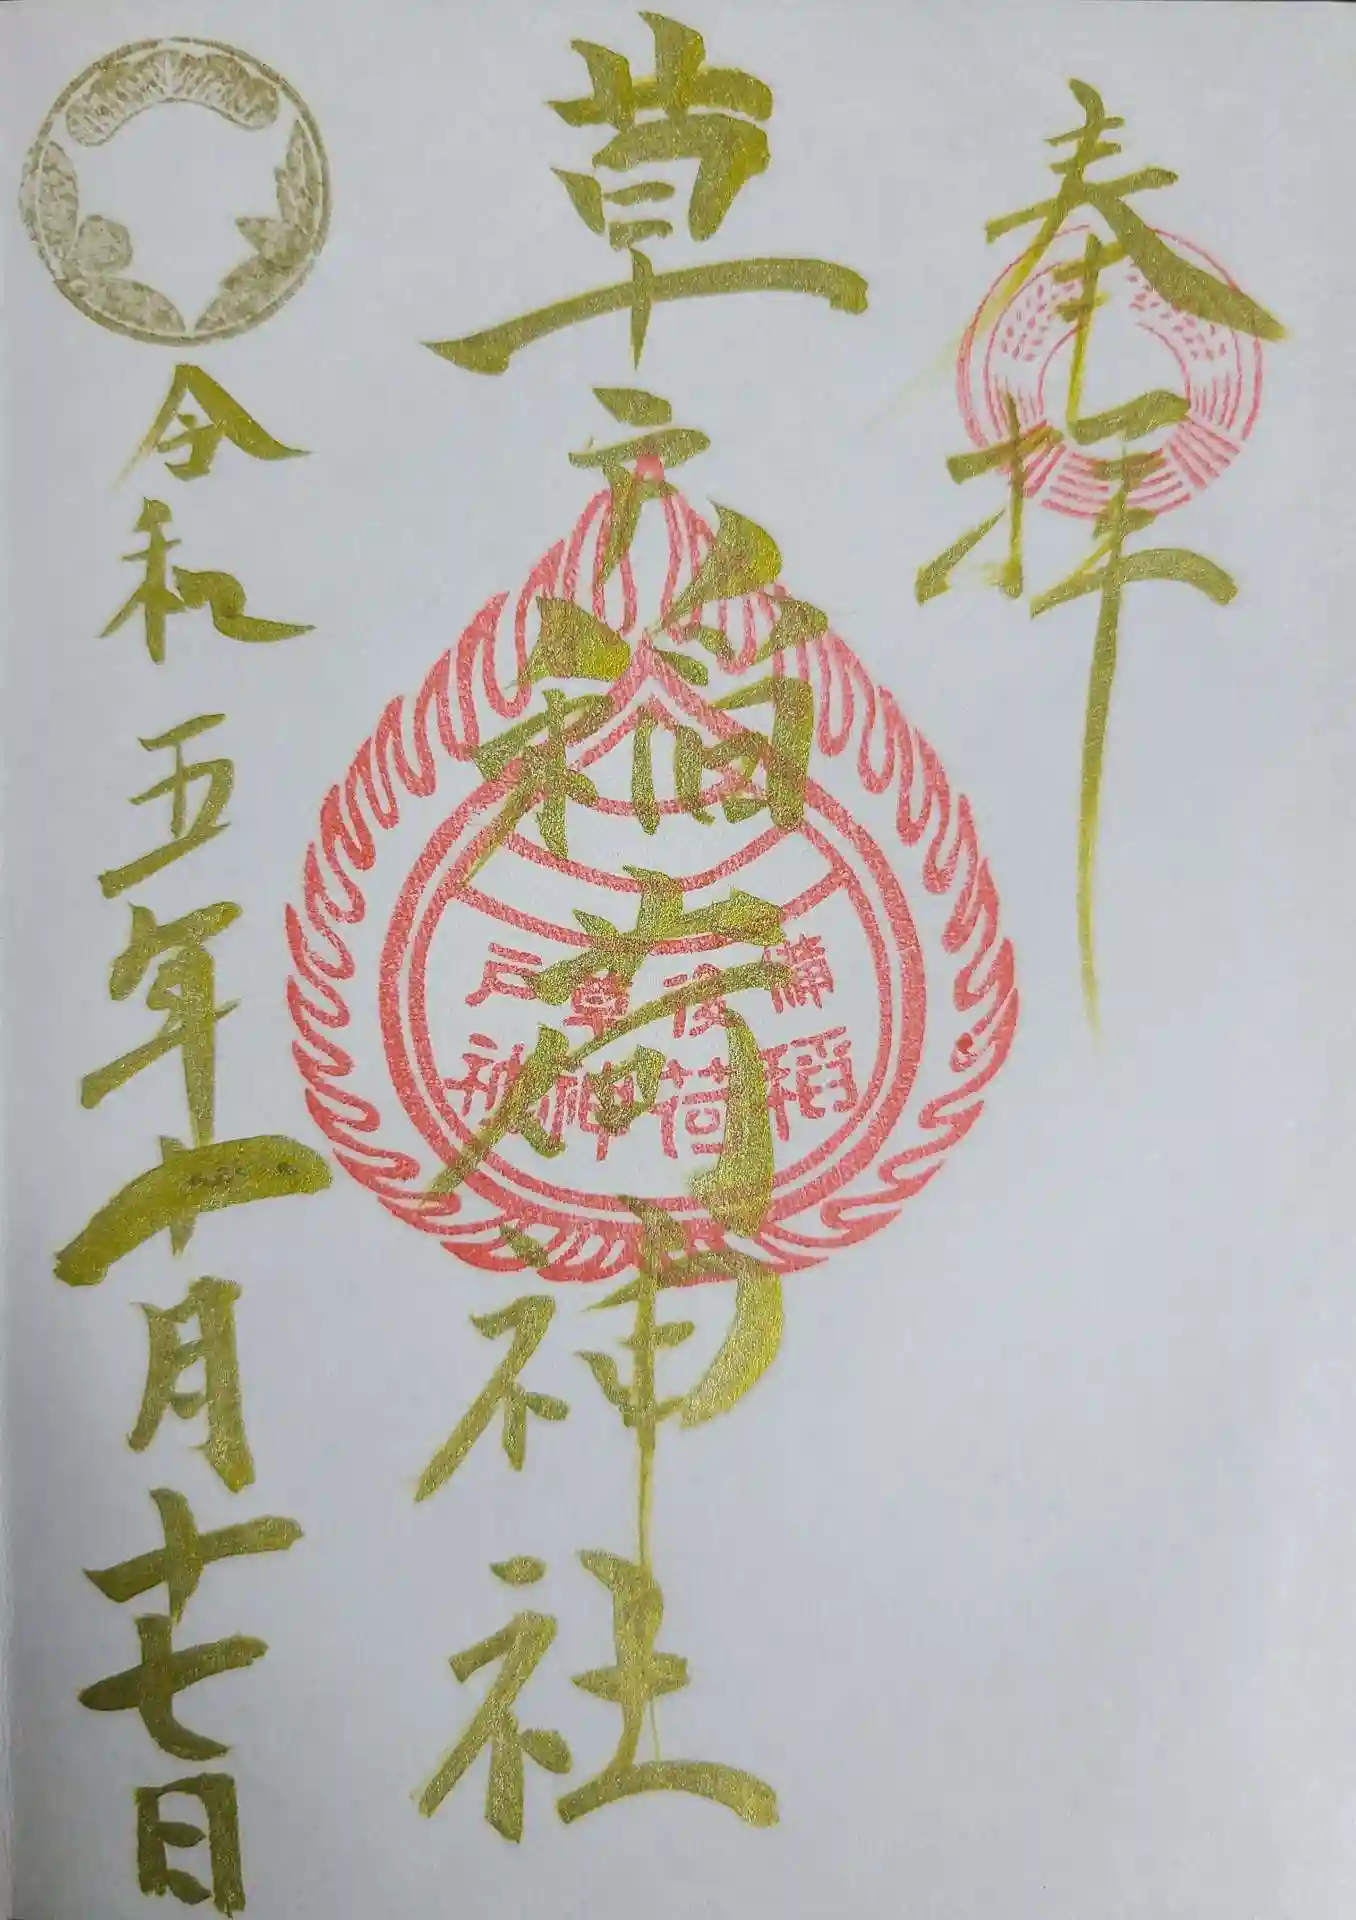 奉拝
草戸稲荷神社
備後草戸
稲荷神社
令和五年十一月十七日